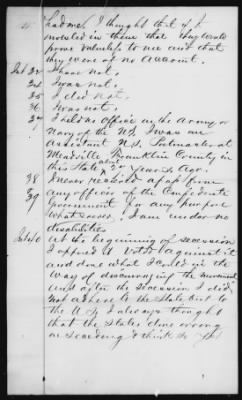 had me. I thought that if I
invested in them that they would
prove valueless to me and that
they were of no account.
Int 33 I have not.
34 I was not.
35 I did not.
36 I was not.
37 I held no office in the Army or
Navy of the U.S. I was an
Assistant U.S. Postmaster at
Meadville Franklin County in
this State about years ago.
38 I never received a pass from
39 any officer of the Confederate
Government for any purpose
whatsoever. I am under no
disabilities
Int 40 At the beginning of secession
I opposed it voted against it
and done what I could in the
way of discouraging the movement
And after the secession I did
not adhere to the State but to
the U.S. I always thought
that the States done wrong
in seceding & think so yet